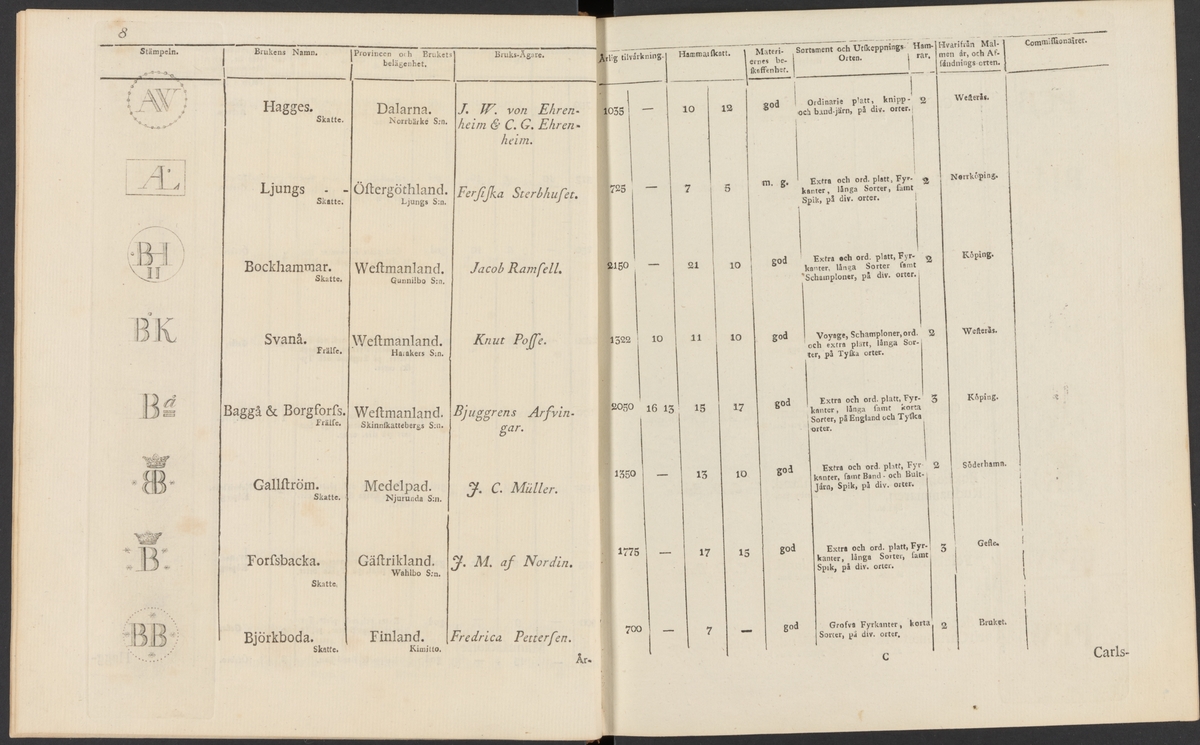 8
Stämpeln. Brukens Namn. Provincen och Brukets belägenhet. Bruks-Ägare. Årlig tilvårkning. Hammarſkatt. Materiernes beſkaffenhet. Sortament och Utſkeppnings-Orten. Hamrar. Hvarifrån Malmen är, och Afſändnings-orten. Commiſſionairer.
AW
Hagges. Dalarna. J. W. von Ehren- 1035 — 10 12 god Ordinarie platt, knipp- 2 Weſterås.
Skatte. Norrbärke S:n. heim & C. G. Ehren- och band-järn, på div. orter.
heim.
AL
Ljungs - - Öſtergöthland. Ferſiſka Sterbhuſet. 725 — 7 5 m. g. Extra och ord. platt, Fyr- 2 Norrköping.
Skatte. Ljungs S:n. kanter, långa Sorter, ſamt
Spik, på div. orter.
BH
II
Bockhammar. Weſtmanland. Jacob Ramſell. 2150 — 21 10 god Extra och ord. platt, Fyr- 2 Köping.
Skatte. Gunnilbo S:n. kanter, långa Sorter ſamt
Schamploner, på div. orter.
BK
Svanå. Weſtmanland. Knut Poſſe. 1322 10 11 10 god Voyage, Schamploner, ord. 2 Weſterås.
Frälſe. Harakers S:n. och extra platt, långa Sor-
ter, på Tyſka orter.
Bå
Baggå & Borgforſs. Weſtmanland. Bjuggrens Arfvin- 2050 16 13 15 17 god Extra och ord. platt, Fyr- 3 Köping.
Frälſe. Skinnſkattebergs S:n. gar. kanter, långa ſamt korta
Sorter, på England och Tyſka
orter.
BB
Gallſtröm. Medelpad. J. C. Müller. 1350 — 13 10 god Extra och ord. platt, Fyr- 2 Söderhamn.
Skatte. Njurunda S:n. kanter, ſamt Band- och Bult-
Järn, Spik, på div. orter.
B
Forſsbacka. Gäſtrikland. J. M. af Nordin. 1775 — 17 15 god Extra och ord. platt, Fyr- 3 Gefle.
Skatte. Wahlbo S:n. kanter, långa Sorter, ſamt
Spik, på div. orter.
BB
Björkboda. Finland. Fredrica Petterſen. 700 — 7 — god Grofva Fyrkanter, korta 2 Bruket.
Skatte. Kimitto. Sorter, på div. orter.
År-
C
Carls-